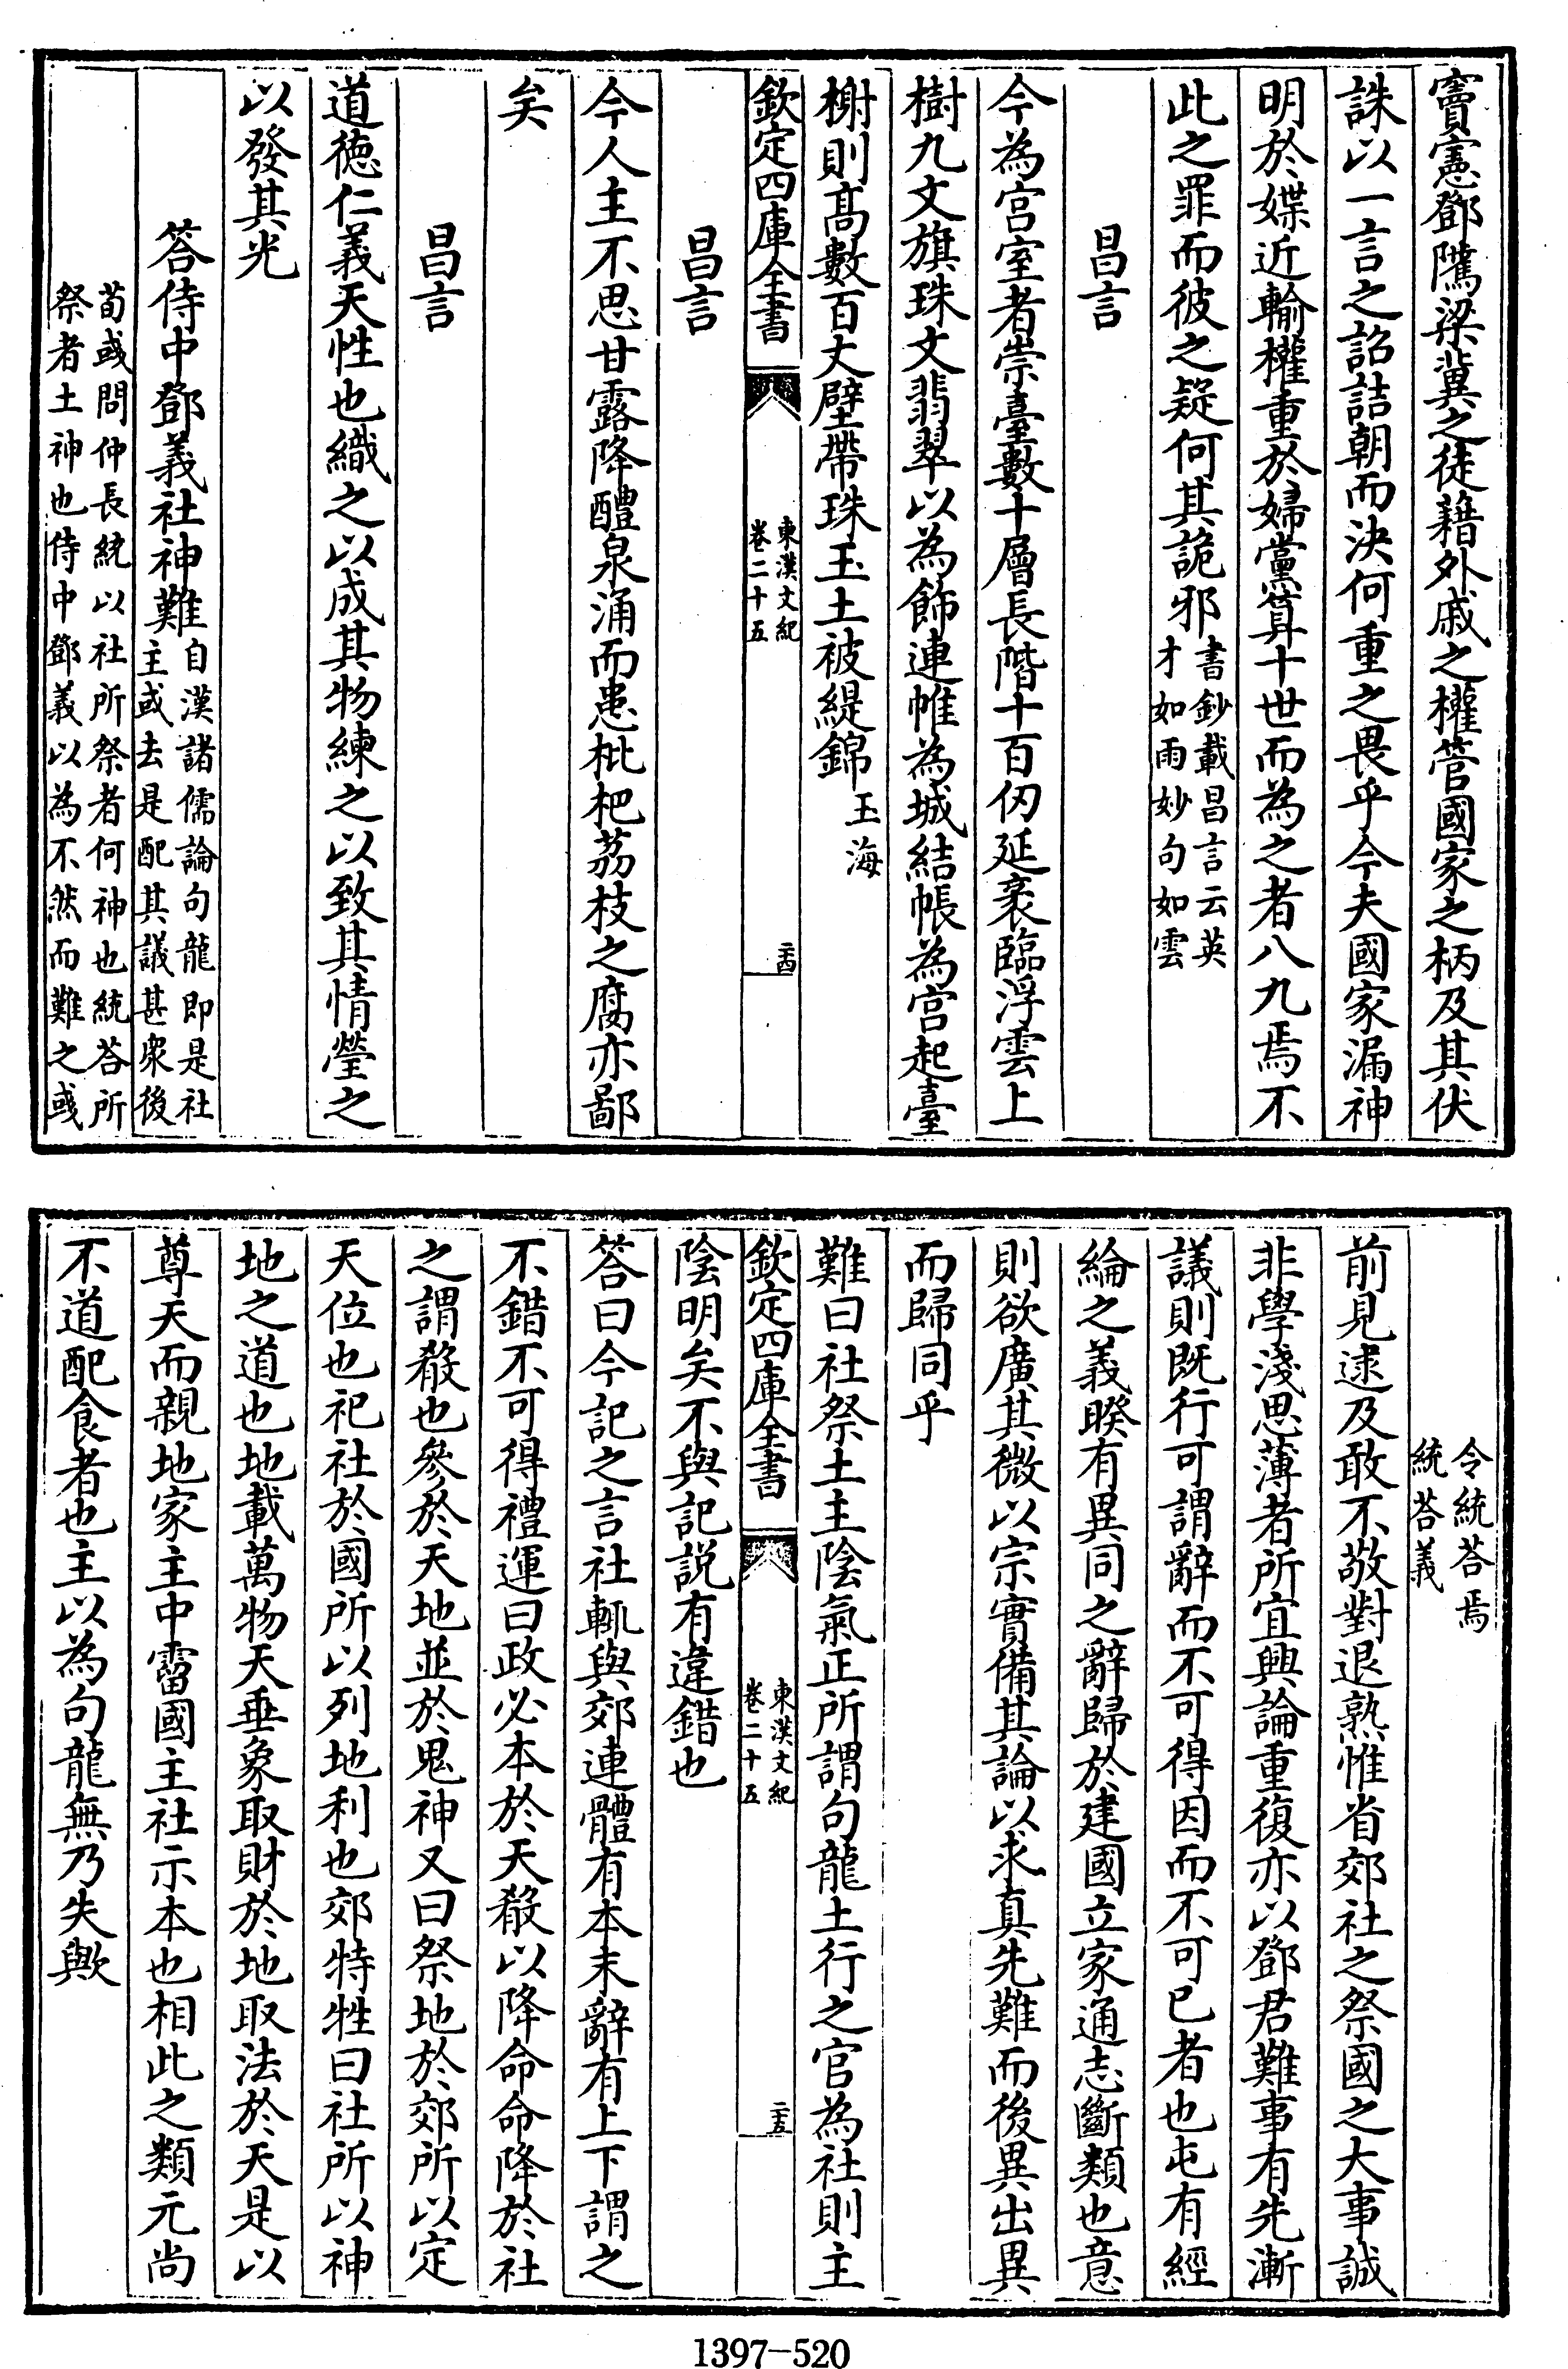 竇憲鄧隲梁冀之徒藉外戚之權管國家之柄及其伏
誅以一言之詔詰朝而決何重之畏乎今夫國家漏神
明於媟近輸權重於婦黨算十世而為之者八九焉不
此之罪而彼之疑何其詭邪書鈔載昌言云英
才如雨妙句如雲
昌言
今為宫室者崇臺數十層長階十百仞延袤臨浮雲上
樹九文旗珠文翡翠以為飾連帷為城結帳為宫起臺
榭則髙數百丈壁帶珠玉土被緹錦玉海
欽定四庫全書
東漢文紀
卷二十五
二十四
昌言
今人主不思甘露降醴泉涌而患枇杷荔枝之腐亦鄙
矣
昌言
道德仁義天性也織之以成其物練之以致其情瑩之
以發其光
答侍中鄧義社神難自漢諸儒論句龍即是社
主或去是配其議甚衆後
荀彧問仲長統以社所祭者何神也統荅所
祭者土神也侍中鄧義以為不然而難之彧
令統荅焉
統荅義
前見逮及敢不敬對退熟惟省郊社之祭國之大事誠
非學淺思薄者所宜興論重復亦以鄧君難事有先漸
議則既行可謂辭而不可得因而不可已者也屯有經
綸之義睽有異同之辭歸於建國立家通志斷類也意
則欲廣其微以宗實備其論以求真先難而後異出異
而歸同乎
難曰社祭土主陰氣正所謂句龍土行之官為社則主
欽定四庫全書
東漢文紀
卷二十五
二十五
陰明矣不與記説有違錯也
答曰今記之言社輒與郊連體有本末辭有上下謂之
不錯不可得禮運曰政必本於天殽以降命命降於社
之謂殽也參於天地並於鬼神又曰祭地於郊所以定
天位也祀社於國所以列地利也郊特牲曰社所以神
地之道也地載萬物天垂象取財於地取法於天是以
尊天而親地家主中霤國主社示本也相此之類元尚
不道配食者也主以為句龍無乃失歟
1397-520